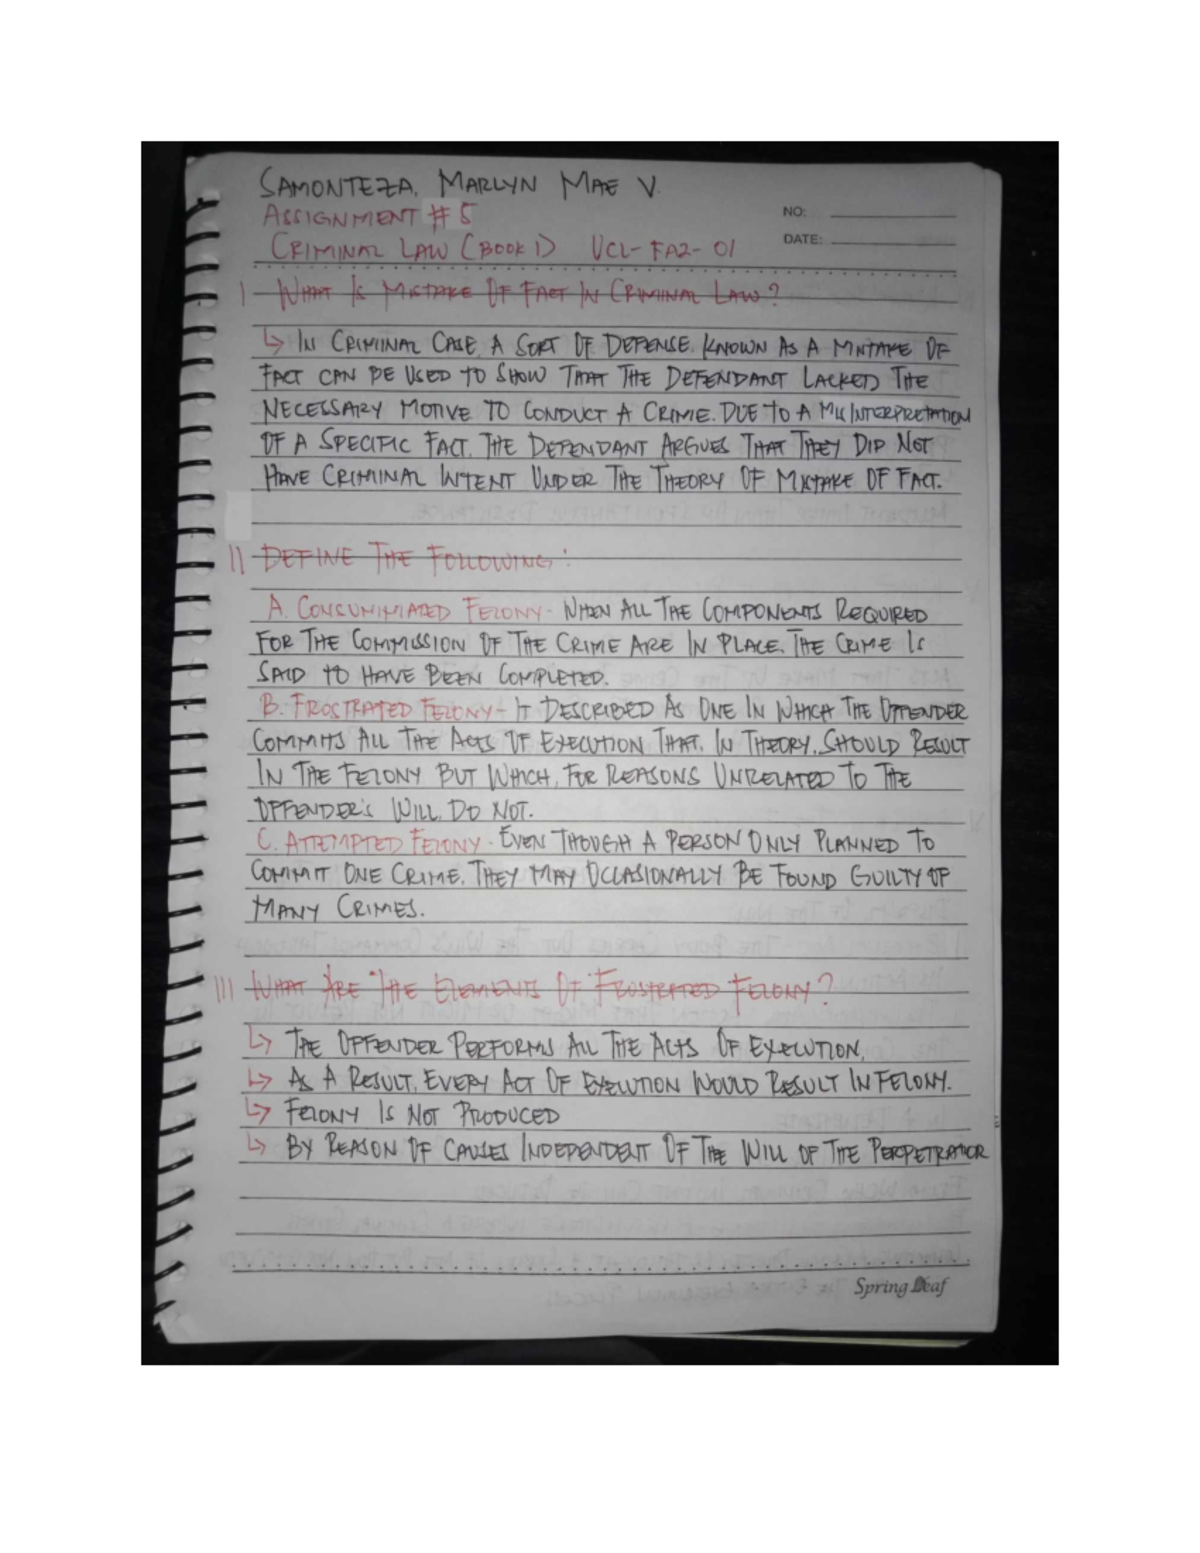 SAMONTEZA, MARLYN MAE V.
ASSIGNMENT # 5
NO:
CRIMINAL LAW (BOOK 1) UCL-FA2-01
DATE:
I WHAT IS MISTAKE OF FACT IN CRIMINAL LAW?
↳ IN CRIMINAL CASE, A SORT OF DEFENSE KNOWN AS A MISTAKE OF
FACT CAN BE USED TO SHOW THAT THE DEFENDANT LACKED THE
NECESSARY MOTIVE TO CONDUCT A CRIME. DUE TO A MISINTERPRETATION
OF A SPECIFIC FACT, THE DEFENDANT ARGUES THAT THEY DID NOT
HAVE CRIMINAL INTENT UNDER THE THEORY OF MISTAKE OF FACT.
II DEFINE THE FOLLOWING:
A. CONSUMMATED FELONY - WHEN ALL THE COMPONENTS REQUIRED
FOR THE COMMISSION OF THE CRIME ARE IN PLACE, THE CRIME IS
SAID TO HAVE BEEN COMPLETED.
B. FROSTRATED FELONY - IT DESCRIBED AS ONE IN WHICH THE OFFENDER
COMMITS ALL THE ACTS OF EXECUTION THAT, IN THEORY, SHOULD RESULT
IN THE FELONY BUT WHICH, FOR REASONS UNRELATED TO THE
OFFENDER'S WILL, DO NOT.
C. ATTEMPTED FELONY - EVEN THOUGH A PERSON ONLY PLANNED TO
COMMIT ONE CRIME, THEY MAY OCCASIONALLY BE FOUND GUILTY OF
MANY CRIMES.
III WHAT ARE THE ELEMENTS OF FROSTRATED FELONY?
↳ THE OFFENDER PERFORMS ALL THE ACTS OF EXECUTION,
↳ AS A RESULT, EVERY ACT OF EXECUTION WOULD RESULT IN FELONY.
↳ FELONY IS NOT PRODUCED
↳ BY REASON OF CAUSES INDEPENDENT OF THE WILL OF THE PERPETRATOR
Spring Leaf